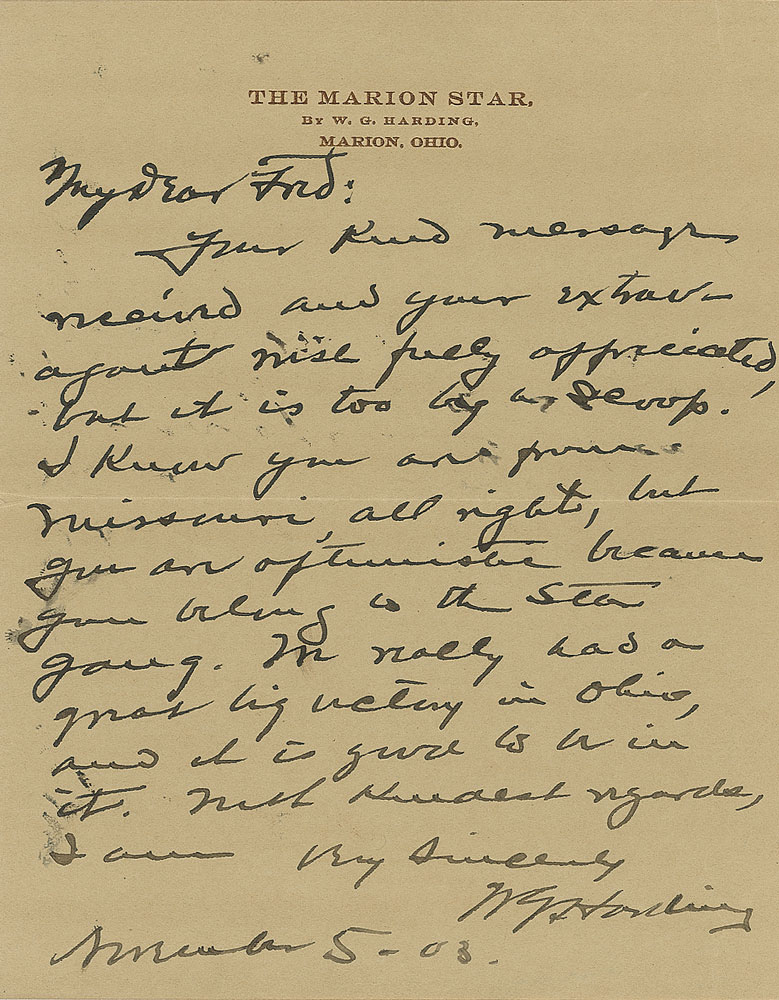 THE MARION STAR,
BY W. G. HARDING,
MARION, OHIO.
My Dear Fred:
Your kind message
received and your extrav-
agant wish fully appreciated,
but it is too big a scoop.
I know you are from
Missouri, all right, but
you are optimistic because
you belong to the Star
gang. We really had a
great big victory in Ohio,
and it is good to be in
it. With kindest regards,
I am Very Sincerely
WGHarding
November 5-03.